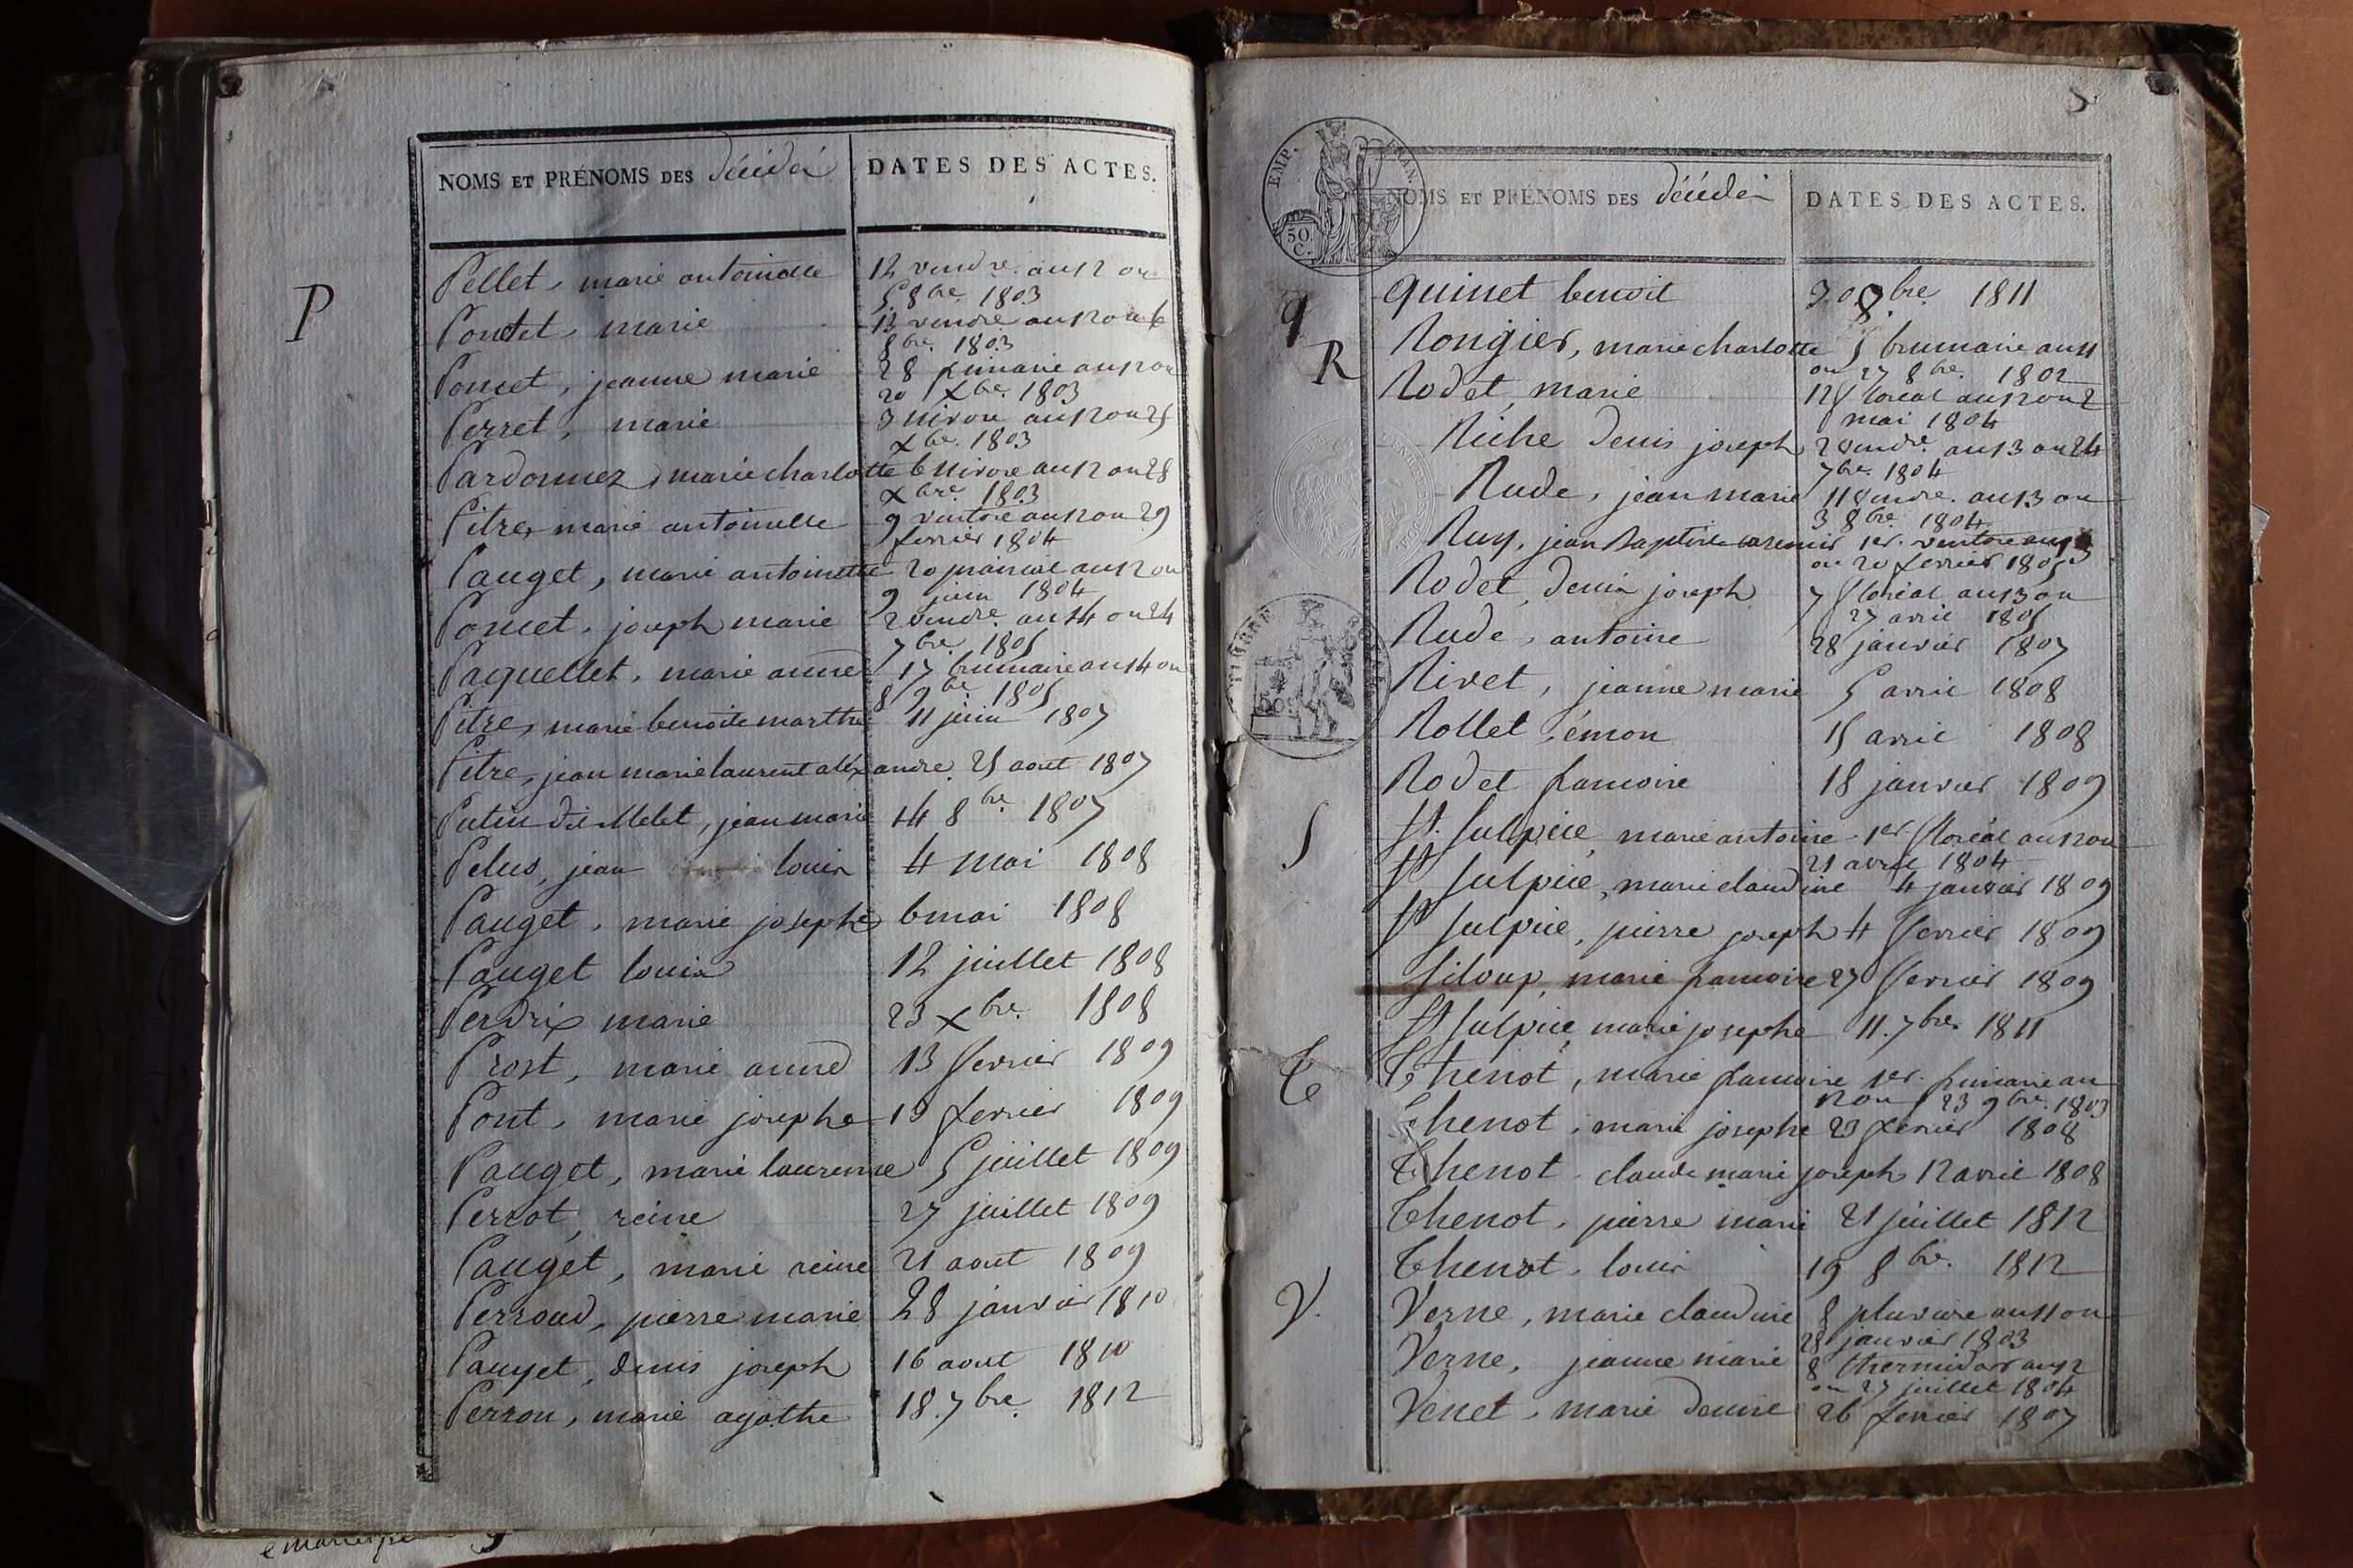 NOMS ET PRÉNOMS DES décédés
DATES DES ACTES.
P
Pellet, marie antoinette 12 vendre. an 12 ou
5. 8bre. 1803
Pontet, marie 13 vendre an 12 ou 6
8bre. 1803
Poncet, jeanne marie 28 frimaire an 12 ou
20 xbre. 1803
Perret, marie 3 nivose an 12 ou 25
xbre. 1803
Pardonnez, marie charlotte 6 nivose an 12 ou 28
xbre. 1803
Pitre, marie antoinette 9 ventose an 12 ou 29
fevrier 1804
Pauget, marie antoinette 20 prairial an 12 ou
9 juin 1804
Poncet, joseph marie 2 vendre. an 14 ou 24
7bre. 1805
Paquellet, marie anne 17 brumaire an 14 ou
8 9bre. 1805
Pitre, marie benoite marthe 11 juin 1807
Pitre, jean marie laurent alexandre 25 aout 1807
Putin dit Melet, jean marie 14 8bre. 1807
Pelus, jean louis 4 mai 1808
Pauget, marie josephe 6 mai 1808
Pauget louis 12 juillet 1808
Perdrix marie 23 xbre. 1808
Prost, marie anne 13 fevrier 1809
Pont, marie josephe 19 fevrier 1809
Pauget, marie laurence 5 juillet 1809
Perrot, reine 27 juillet 1809
Pauget, marie reine 21 aout 1809
Perroud, pierre marie 28 janvier 1810
Pauget, denis joseph 16 aout 1810
Perron, marie agathe 18. 7bre. 1812
EMP. FRAN.
50 C.
NOMS ET PRÉNOMS DES décédés
DATES DES ACTES.
q
quinet benoit 8bre. 1811
R
Rongier, marie charlotte 5 brumaire an 11
ou 27 8bre. 1802
Rodet, marie 12 floréal an 12 ou 2
mai 1804
Riche denis joseph 2 vendre. an 13 ou 24
7bre. 1804
Rude, jean marie 11 vendre. an 13 ou
3 8bre. 1804
Ruy, jean baptiste 1er. ventose an 13
ou 20 fevrier 1805
Rodet, denis joseph 7 floréal an 13 ou
27 avril 1805
Rude, antoine 28 janvier 1807
Rivet, jeanne marie 5 avril 1808
Rollet, émon 15 avril 1808
Rodet francoise 18 janvier 1809
S
St. Sulpice, marie antoine 1er. floréal an 12 ou
21 avril 1804
St Sulpice, marie claudine 4 janvier 1809
St Sulpice, pierre joseph 4 fevrier 1809
Siloup, marie francoise 27 fevrier 1809
St Sulpice, marie josephe 11. 7bre. 1811
T
Thenot, marie francoise 1er. frimaire an
12 ou 23 9bre. 1803
Thenot, marie josephe 23 fevrier 1808
Thenot, claude marie joseph 12 avril 1808
Thenot, pierre marie 21 juillet 1812
Thenot, louis 19 8bre. 1812
V.
Verne, marie claudine 8 pluviose an 11 ou
28 janvier 1803
Verne, jeanne marie 8 thermidor an 12
ou 27 juillet 1804
Venet, marie denise 26 fevrier 1807